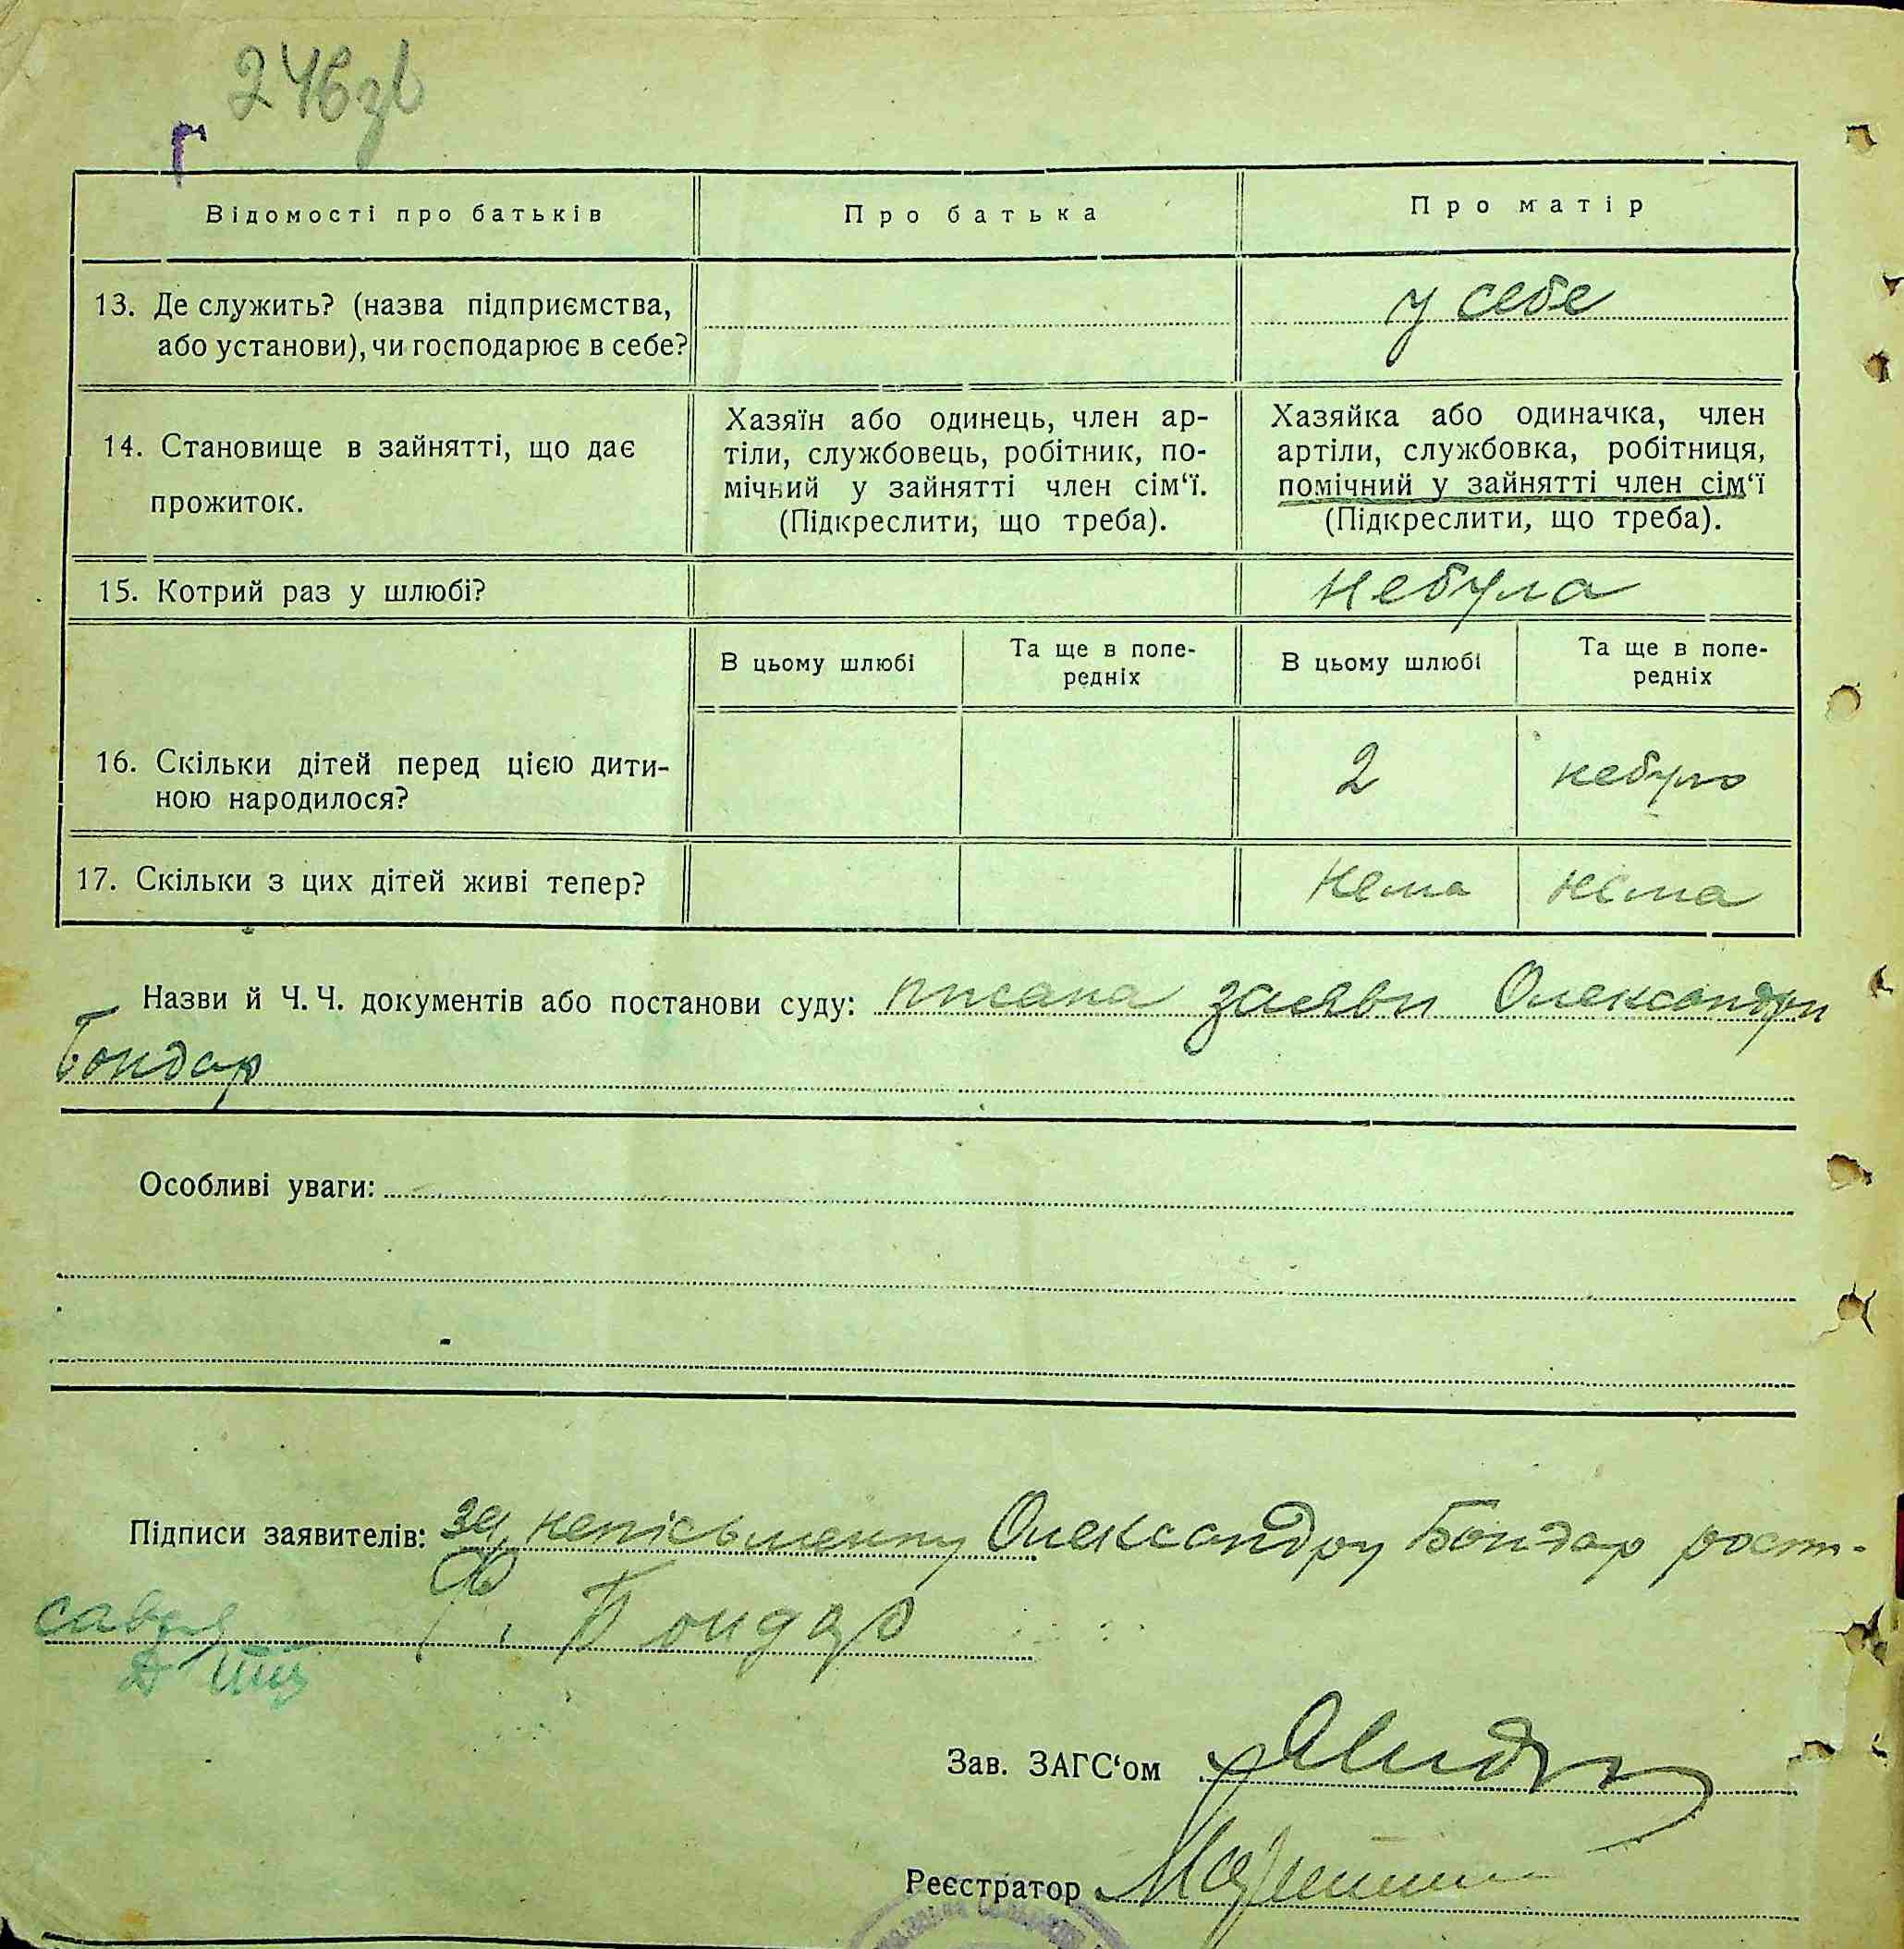 246зв
г
Відомості про батьків
Про батька
Про матір
13. Де служить? (назва підприємства,
або установи), чи господарює в себе?
у себе
14. Становище в зайнятті, що дає
прожиток.
Хазяїн або одинець, член ар-
тіли, службовець, робітник, по-
мічний у зайнятті член сім‘ї.
(Підкреслити, що треба).
Хазяйка або одиначка, член
артіли, службовка, робітниця,
помічний у зайнятті член сім‘ї
(Підкреслити, що треба).
15. Котрий раз у шлюбі?
небула
В цьому шлюбі
Та ще в попе-
редніх
В цьому шлюбі
Та ще в попе-
редніх
16. Скільки дітей перед цією дити-
ною народилося?
2
небуло
17. Скільки з цих дітей живі тепер?
нема
нема
Назви й Ч. Ч. документів або постанови суду: писана заяви Олександри
Бондар
Особливі уваги:
Підписи заявителів: за неписьменну Олександру Бондар
Бондар
Зав. ЗАГС‘ом
Реєстратор